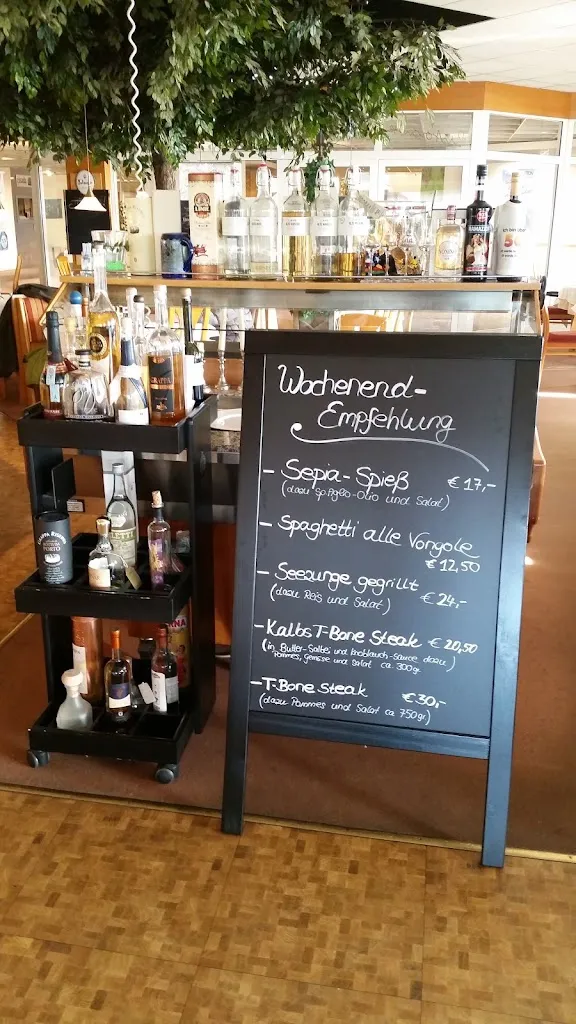 Wochenend-
Empfehlung
- Sepia-Spieß € 17,-
(dazu Spagetti-Olio und Salat)
- Spaghetti alle Vongole
€ 12,50
- Seezunge gegrillt
(dazu Reis und Salat) € 24,-
- Kalbs T-Bone Steak € 20,50
(in Butter-Salbei und Knoblauch-Sauce dazu
Pommes, gemüse und Salat ca. 300gr.)
- T-Bone Steak € 30,-
(dazu Pommes und Salat ca 750gr.)
GRAPPA
PORTO
RAMAZZOTTI